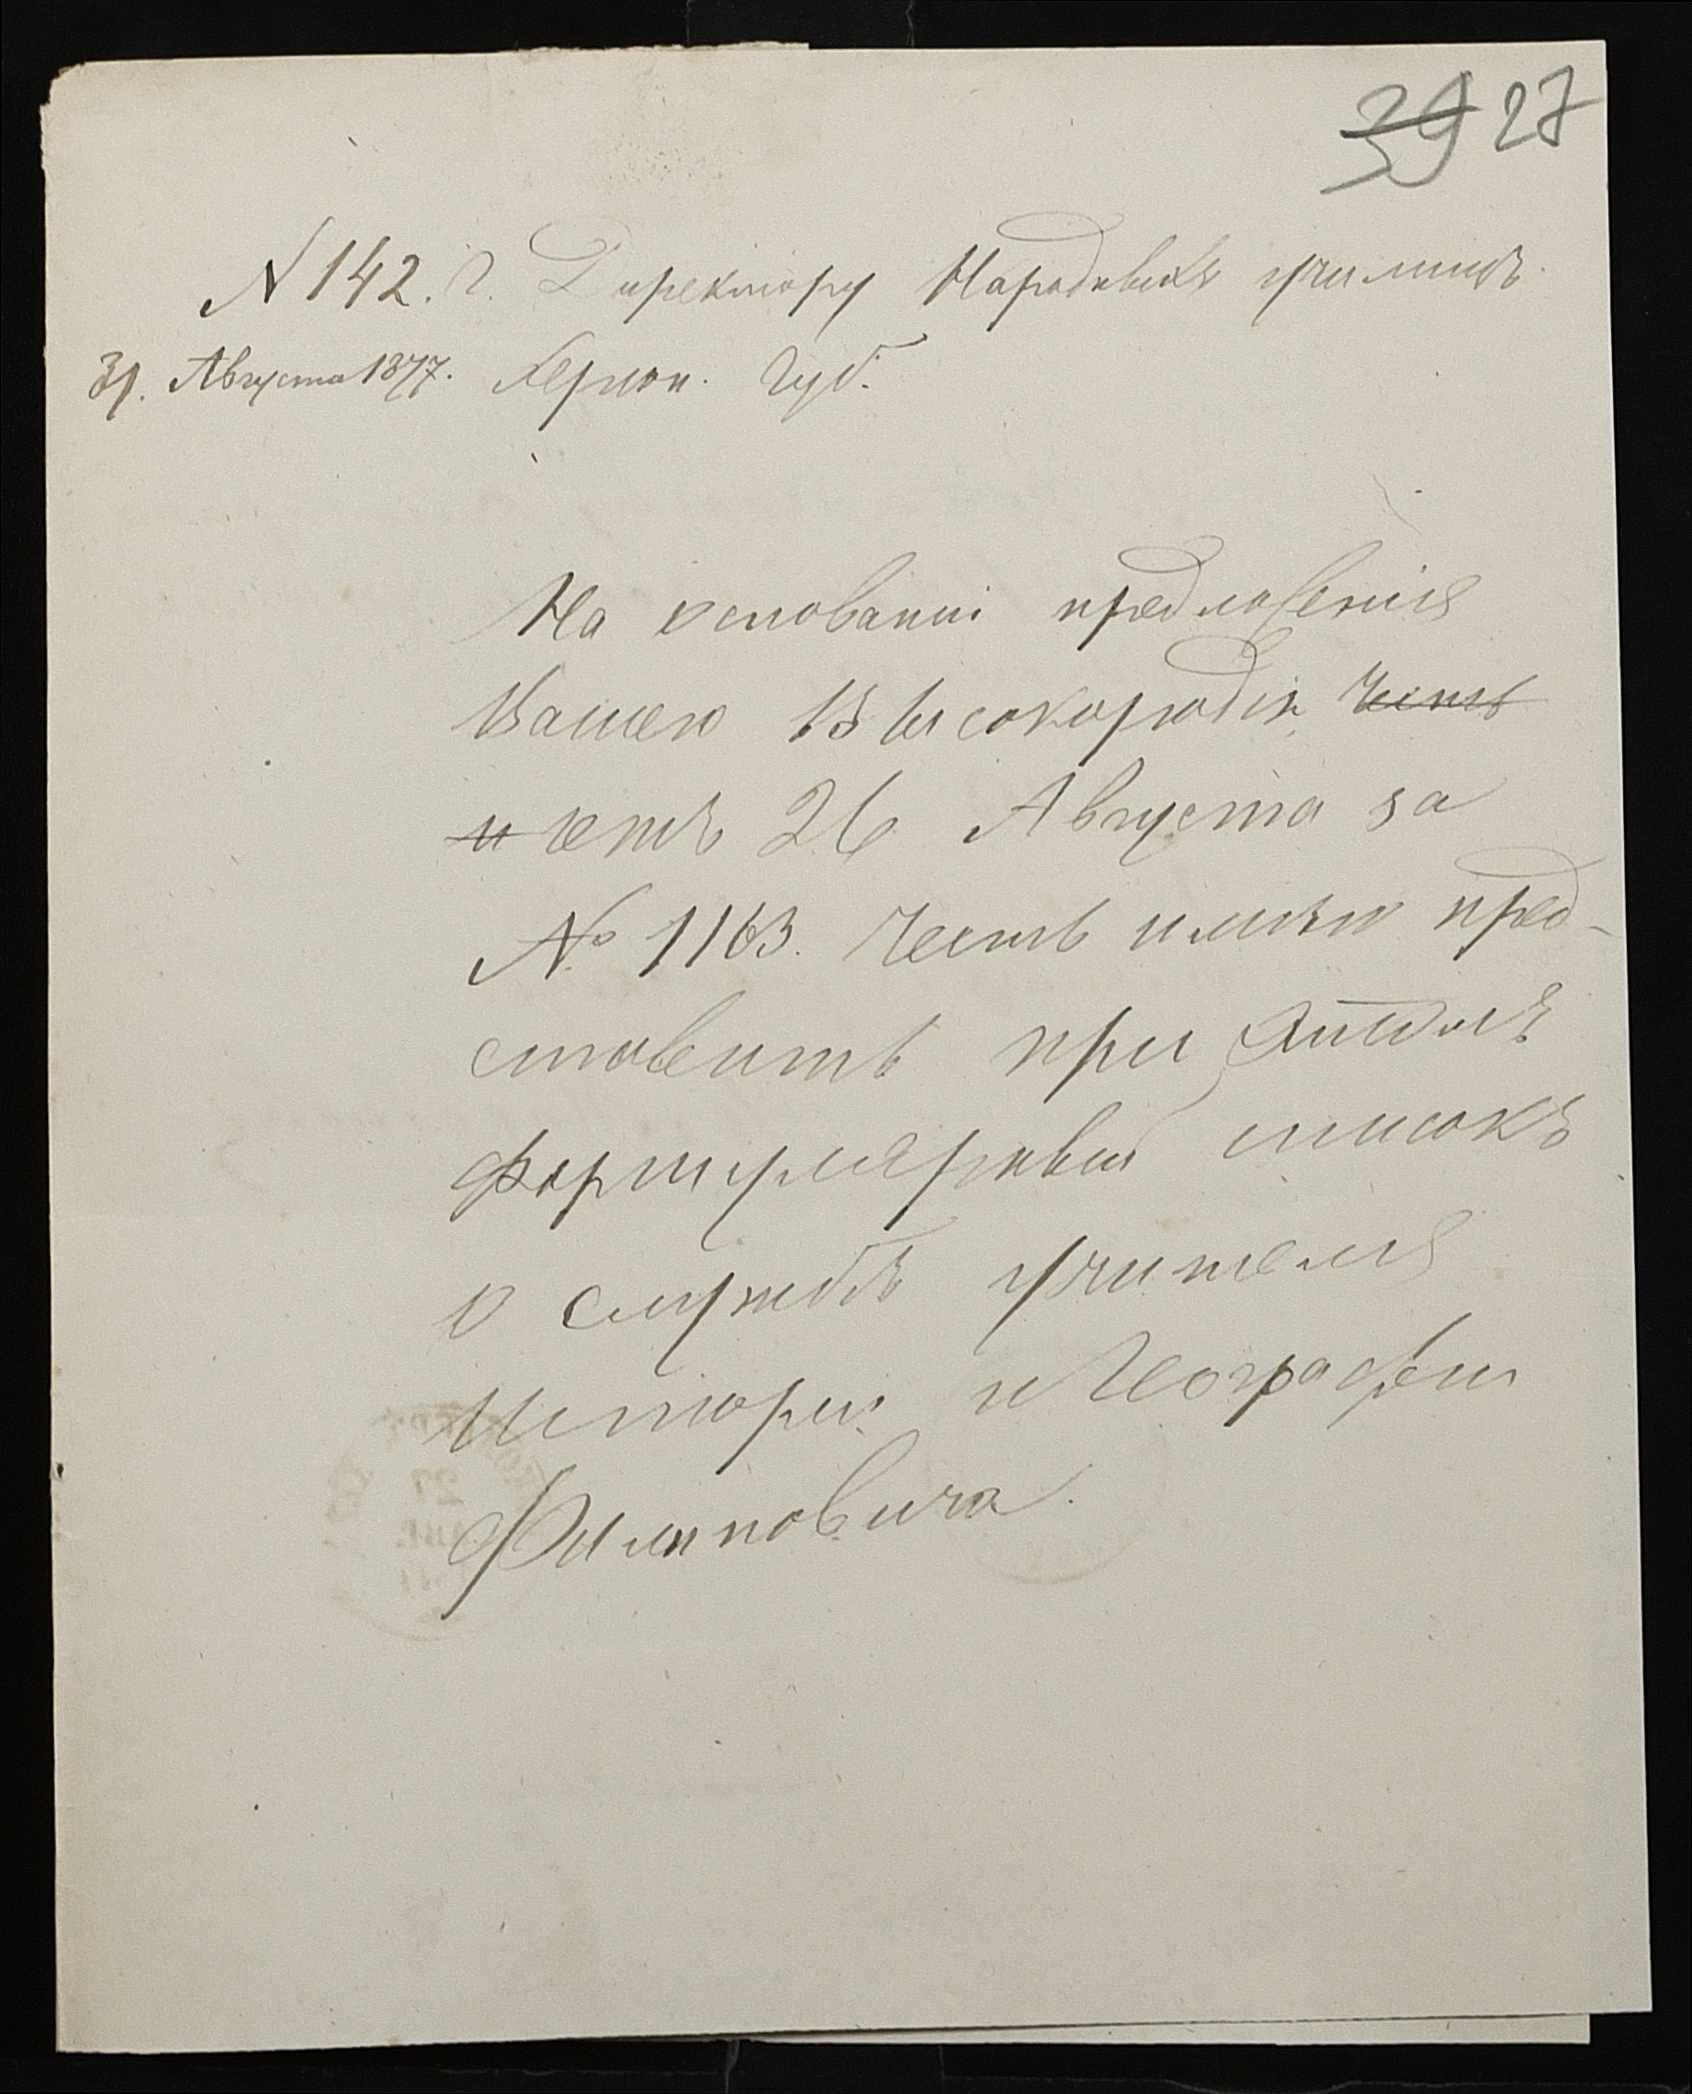 39 27
N 142. Г. Директору Народныхъ училищъ
31. Августа 1877. Херсон. Губ.
На основаніи предложенія
Вашего Высокородія, Честь
и отъ 26 Августа за
№ 1163. Честь имѣю пред-
ставить при этомъ
формулярный списокъ
о службѣ учителя
Исторіи и Географіи
Филиповича.